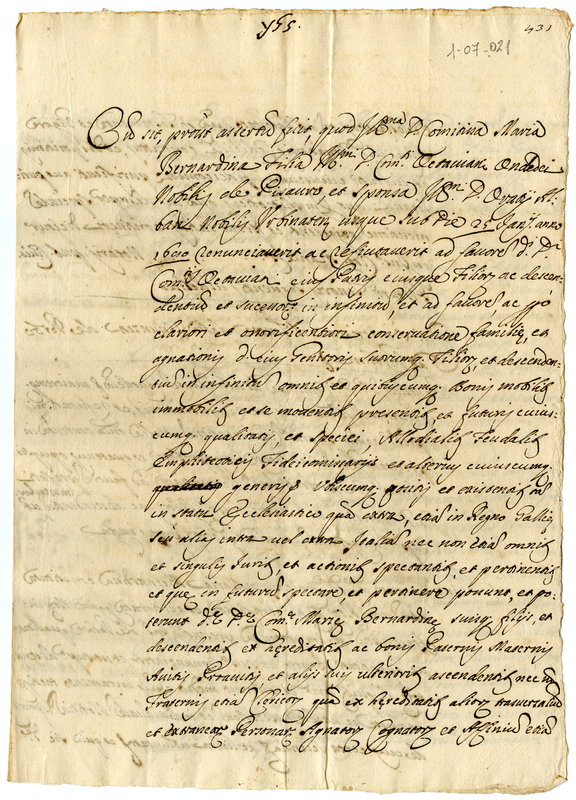 yhs.
431
1-07-021
Cũ sit, prout assertũ fuit, quod Ill.ma D. Comitina Maria
Bernardina Filia Ill.mi D. Com. Octavian
Nobilis de Pisauro, et sponsa Ill. D.
Nobilis Urbinaten usque sub die 25 Jan. anno
1690 renunciaverit ac refutaverit ad favorẽ d.
Com. Octavian eius Patris eiusque Filior ac descen-
dentium et successor in infinitum, et ad favorẽ, ac pro
clariori et onorificentiori conservatione familiẹ, et
agnationis d. eius Genitoris suorumq. Filior, et descenden-
tiũ in infinitũ omnib et quibuscumq. Bonis mobilib
immobilib et se moventib presentib, et futuris cuius-
cumq. qualitatis, et speciei, Allodialib Feudalib
Emphiteoticis Fideicommissarijs et alterius cuiuscumq.
generis ubicumq. positis et existentib tã
in statu Ecclesiastico quã extra, etiã in Regno Galliẹ
seu alias intra vel extra Italiã nec non etiã omnib
et singulis Jurib et actionib spectantib, et pertinentib
et que in futurũ spectare et pertinere possunt, et po-
terunt d. D. Com. Mariẹ Bernardinẹ suisq. filijs, et
descendentib ex hẹreditatib ac bonis Paternis Maternis
Avitis Proavitis et alijs suis ulteriorib ascendentib nec
Fraternis etiã quã ex hẹreditatib alior trasversaliũ
et extranear Personar Agnator Cognator et Affiniũ etiã